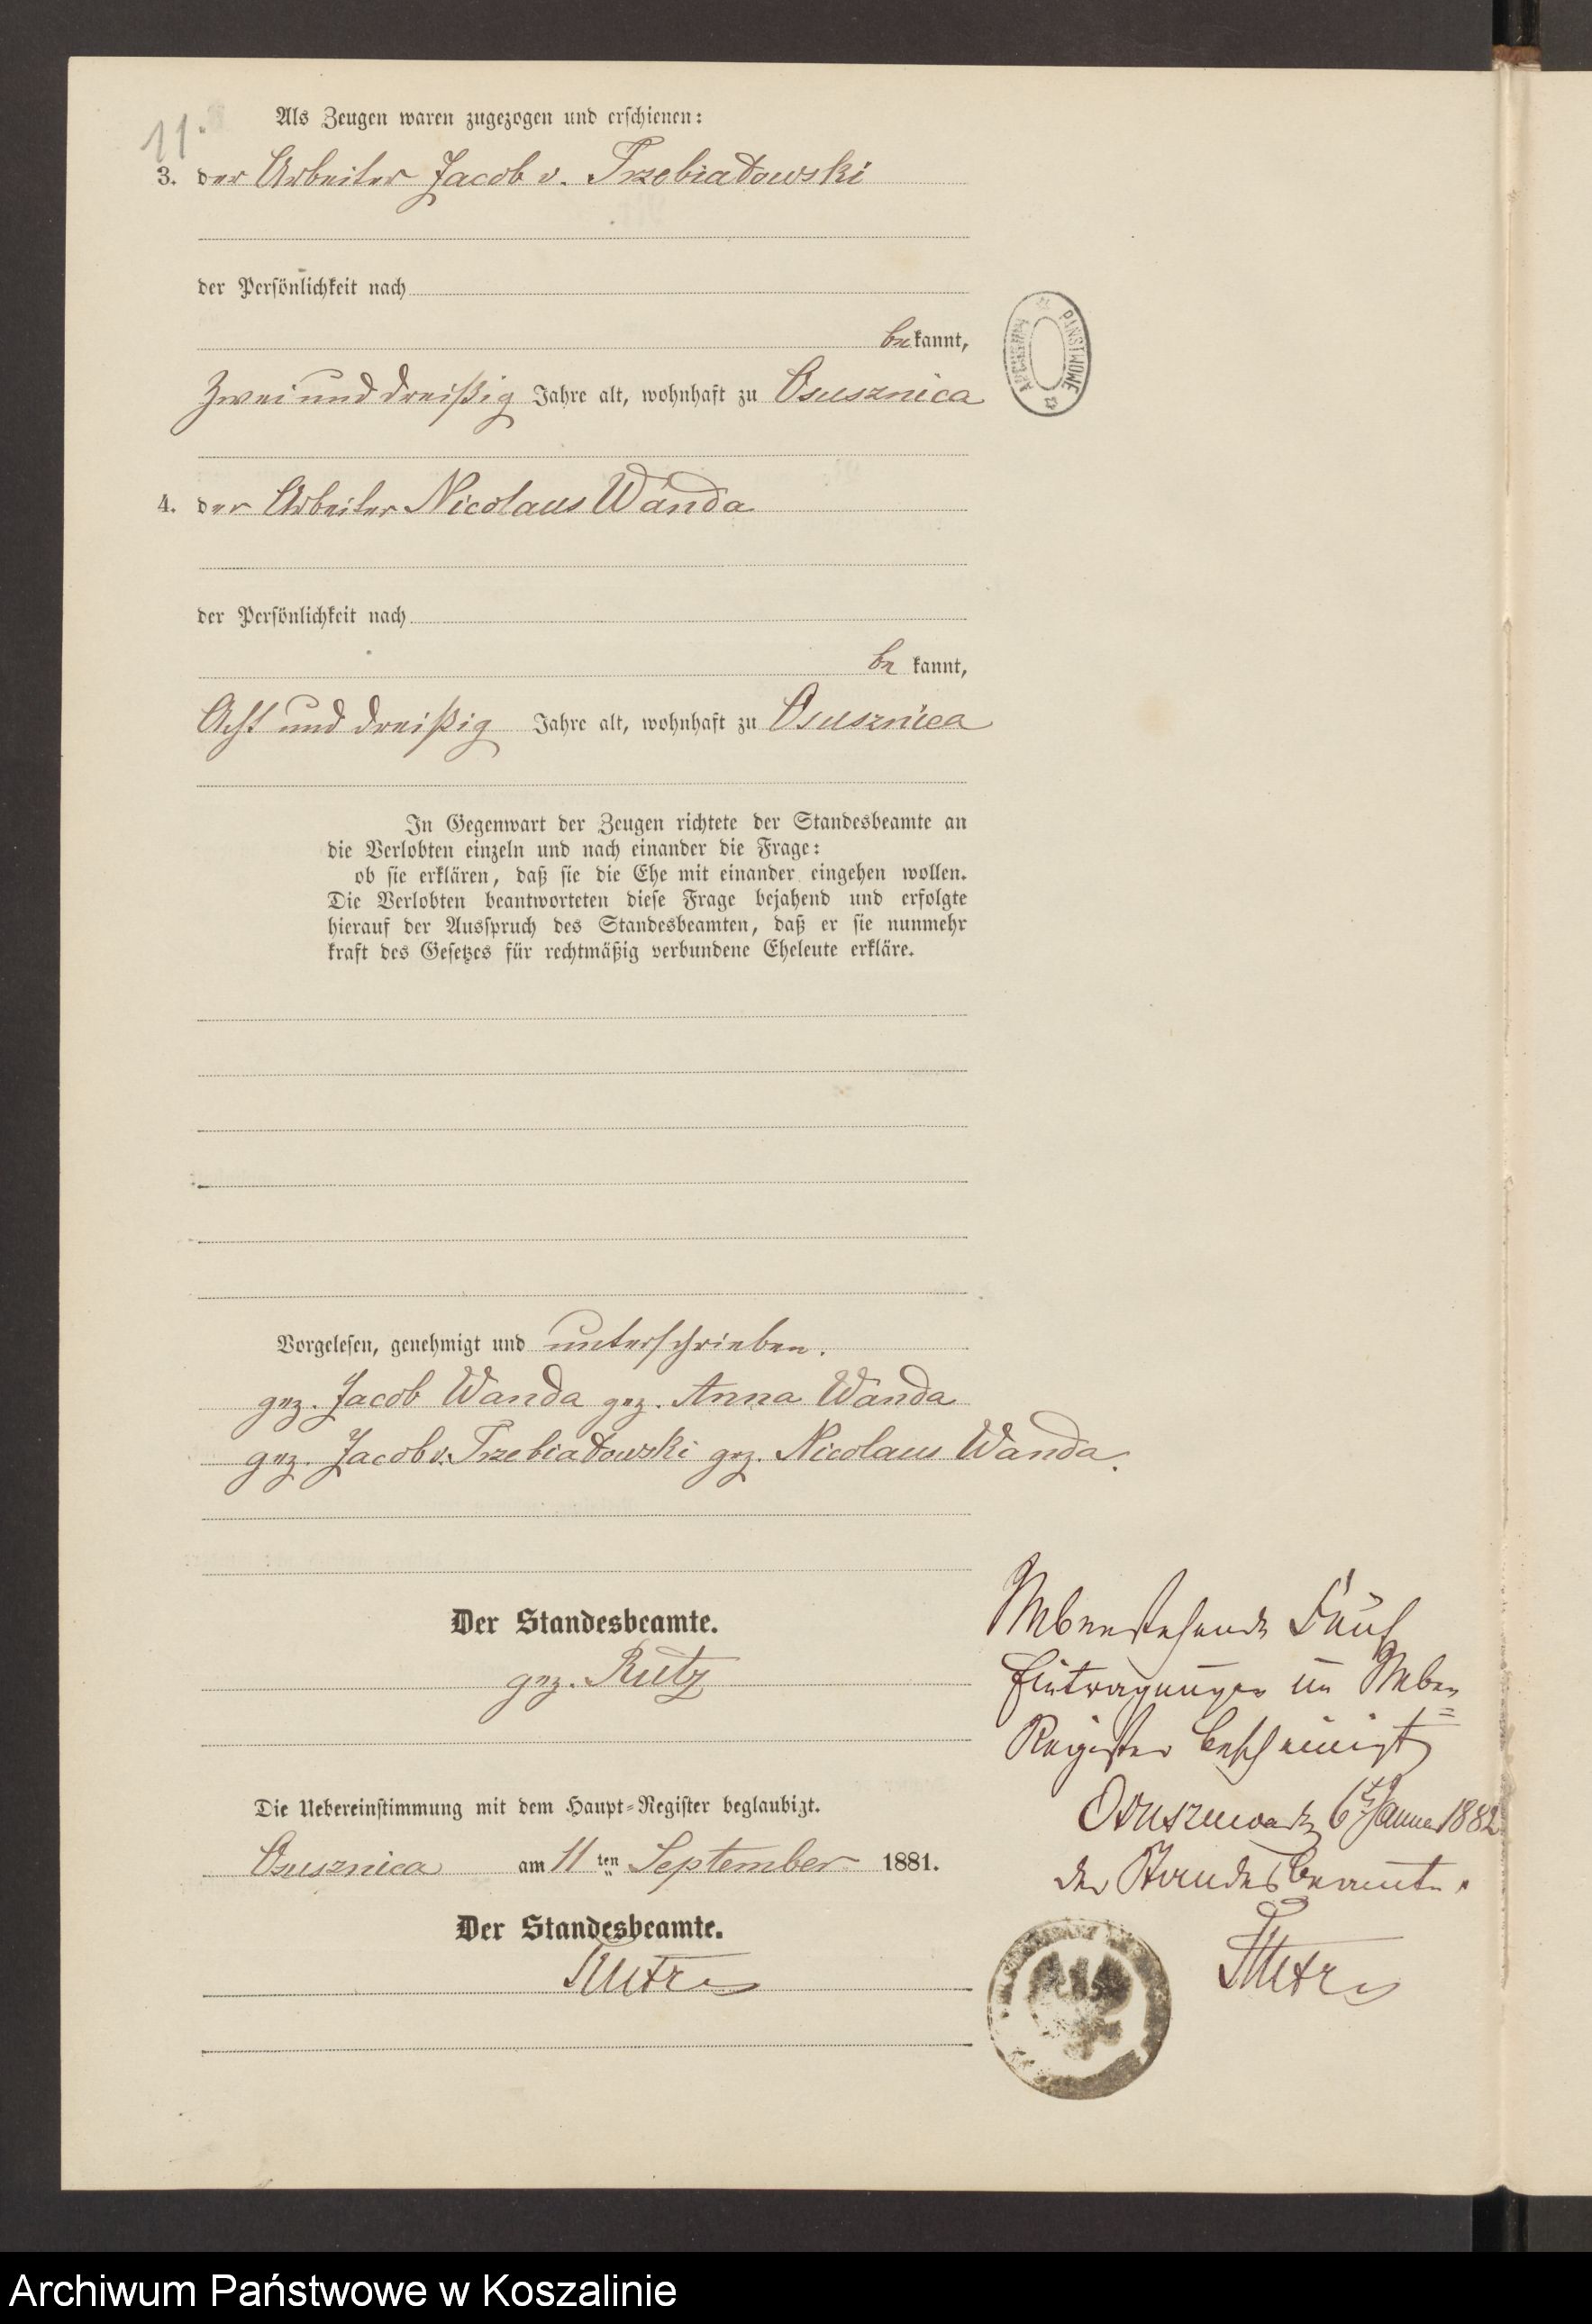 11.
Als Zeugen waren zugezogen und erschienen:
3. der Arbeiter Jacob v. Trzebiatowski
der Persönlichkeit nach
bekannt,
Zwei und dreißig Jahre alt, wohnhaft zu Osusznica
4. der Arbeiter Nicolaus Wanda
der Persönlichkeit nach
be kannt,
Acht und dreißig Jahre alt, wohnhaft zu Osusznica
In Gegenwart der Zeugen richtete der Standesbeamte an
die Verlobten einzeln und nach einander die Frage:
ob sie erklären, daß sie die Ehe mit einander eingehen wollen.
Die Verlobten beantworteten diese Frage bejahend und erfolgte
hierauf der Ausspruch des Standesbeamten, daß er sie nunmehr
kraft des Gesetzes für rechtmäßig verbundene Eheleute erkläre.
Vorgelesen, genehmigt und unterschrieben.
gez. Jacob Wanda gez. Anna Wanda
gez. Jacob v. Trzebiatowski gez. Nicolaus Wanda.
Der Standesbeamte.
gez. Rutz
Die Uebereinstimmung mit dem Haupt-Register beglaubigt.
Osusznica am 11ten September 1881.
Der Standesbeamte.
ARCHIWUM PAŃSTWOWE
Nebenstehende Fünf
Eintragungen im Neben=
Register bescheinigt
6t Januar 1882
der Standesbeamte.
Archiwum Państwowe w Koszalinie